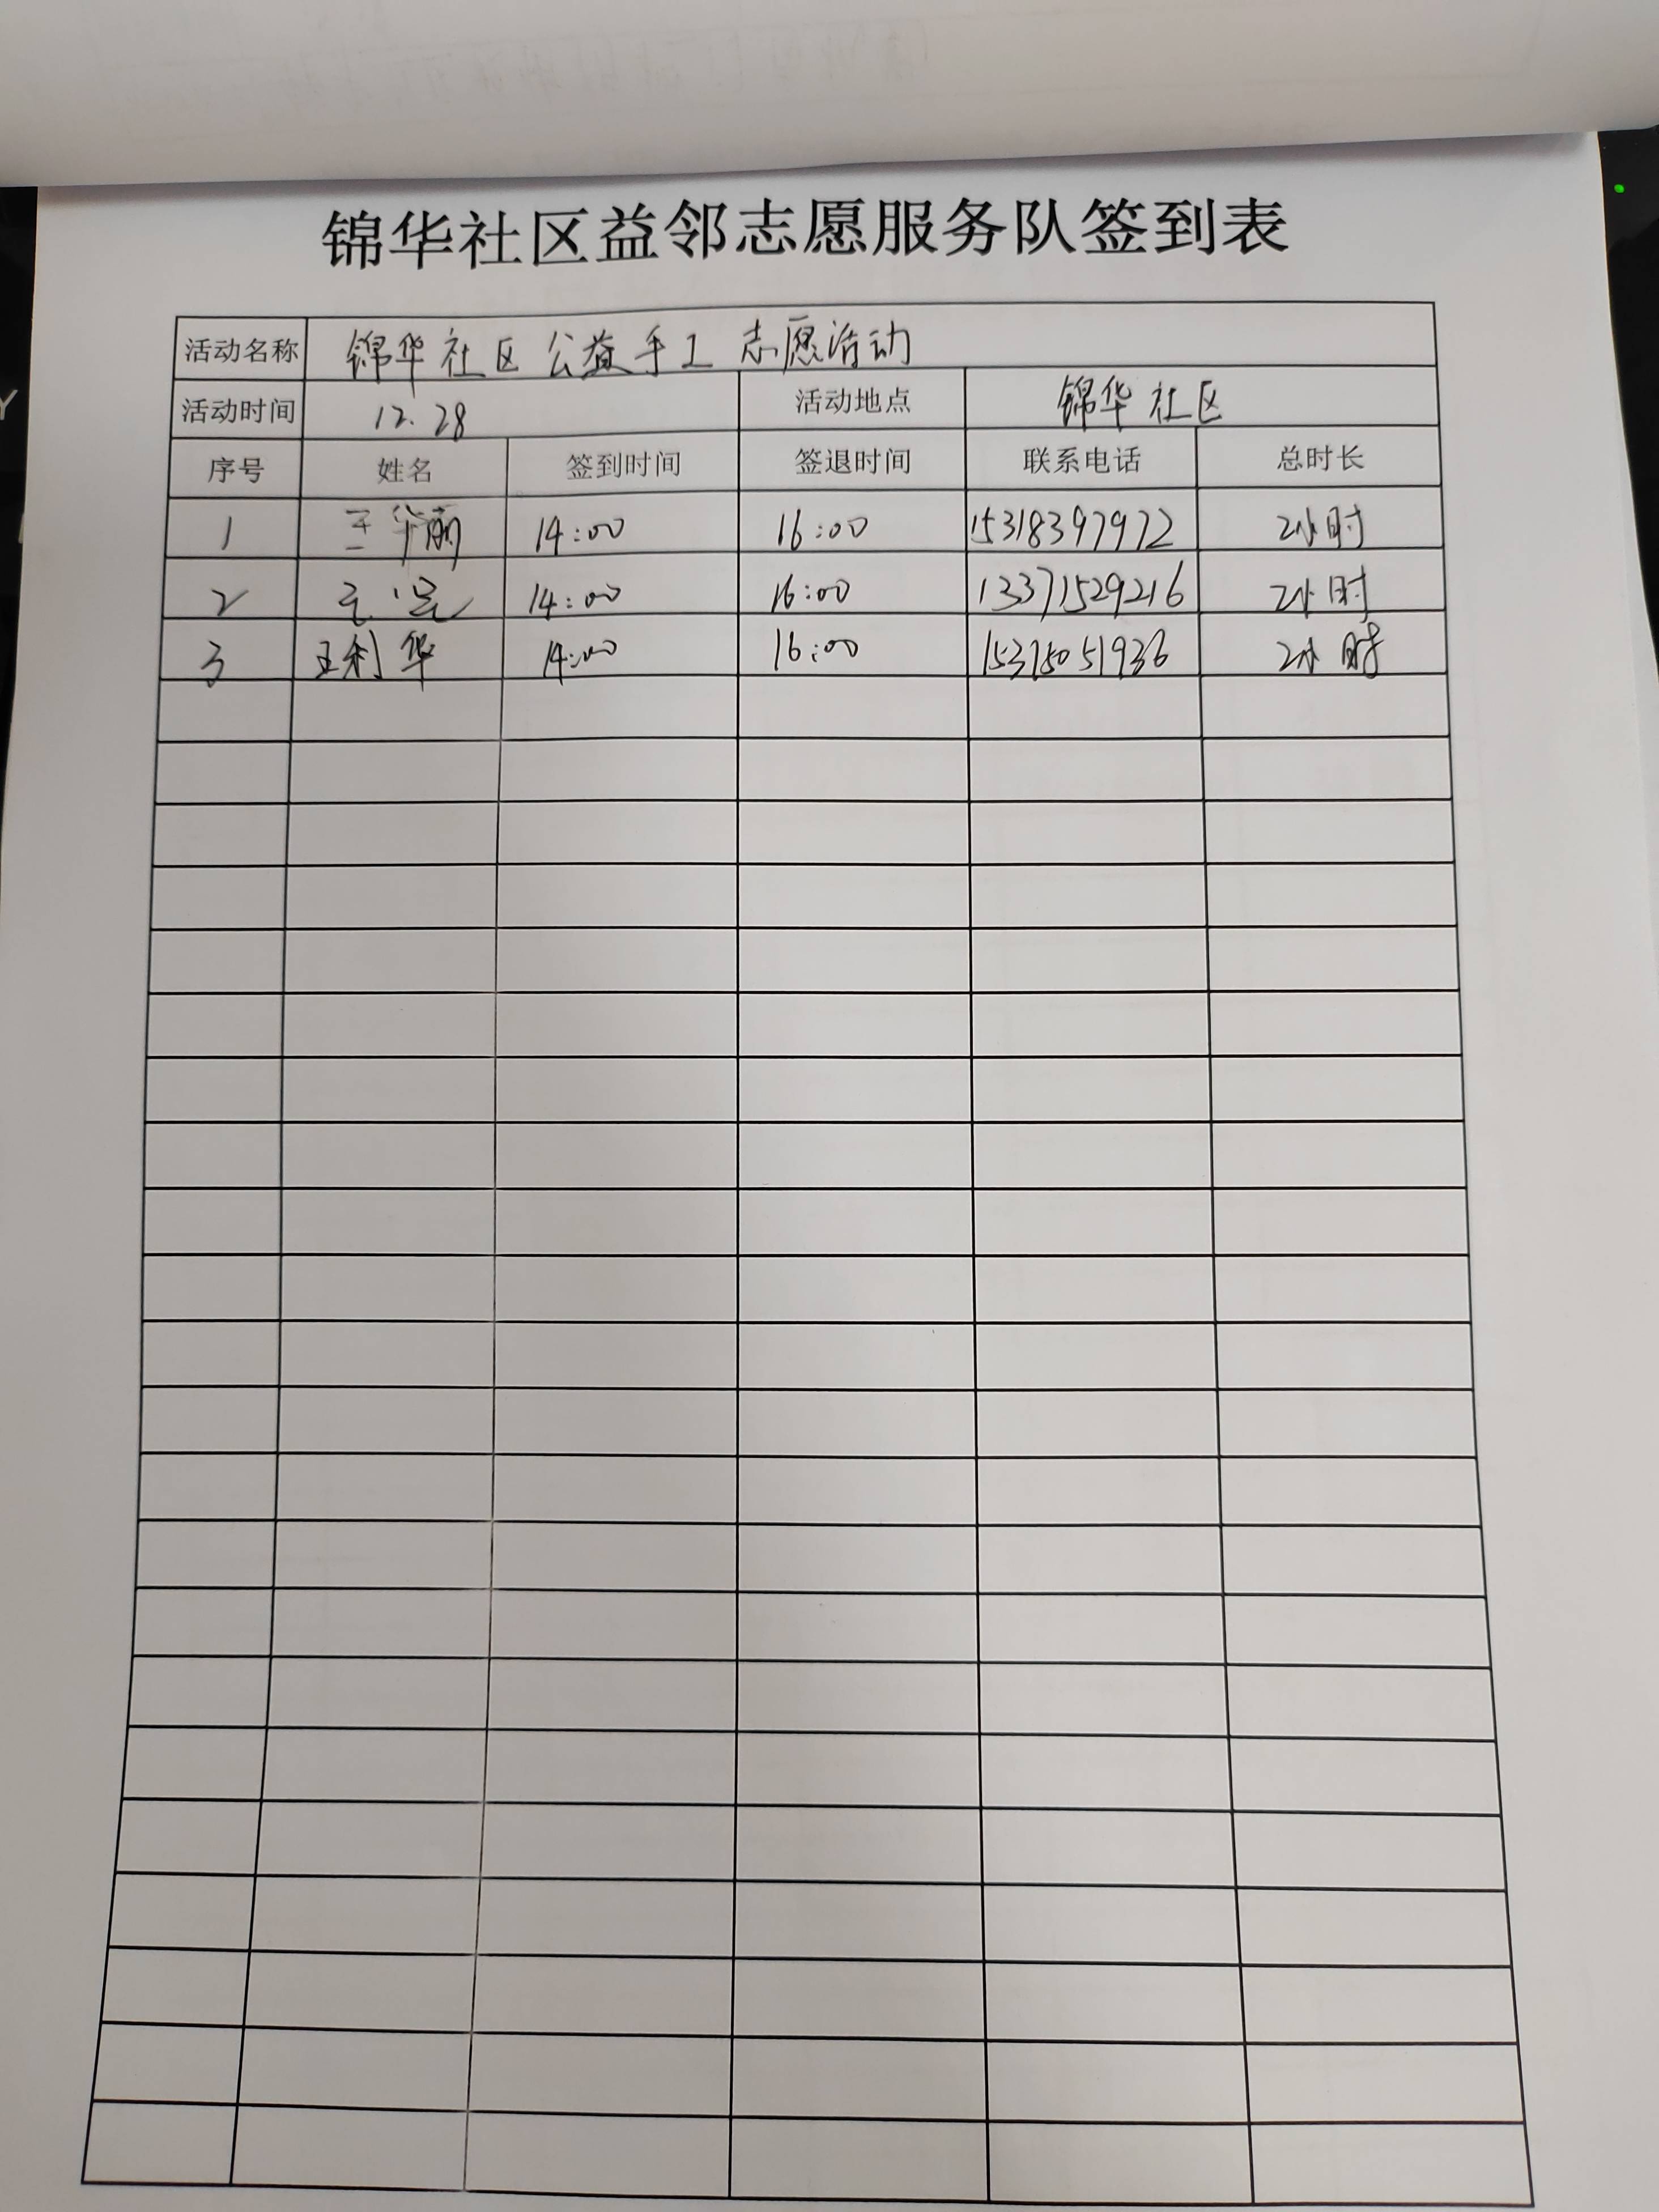 锦华社区益邻志愿服务队签到表
活动名称 锦华社区公益手工志愿活动
活动时间 12.28 活动地点 锦华社区
序号 姓名 签到时间 签退时间 联系电话 总时长
1 王华丽 14:00 16:00 15318397972 2小时
2 14:00 16:00 13371529216 2小时
3 王利华 14:00 16:00 15375051936 2小时